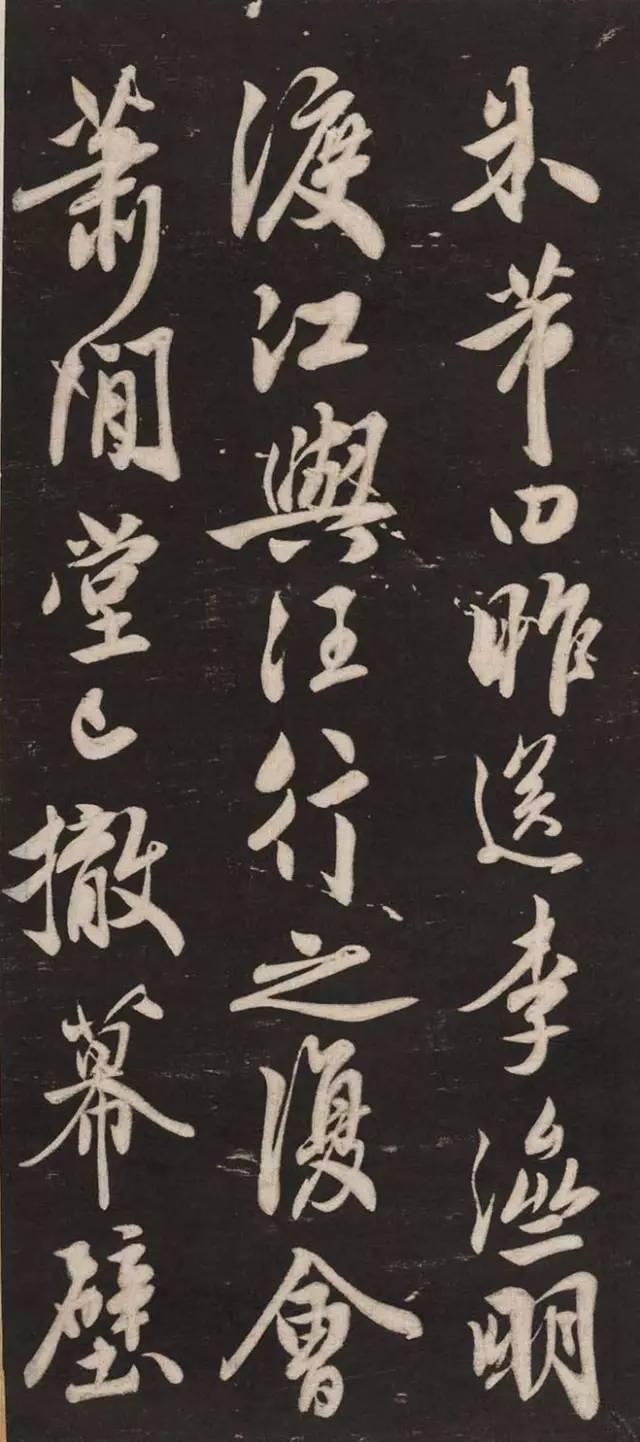 米芾昨送李澁明
渡江與汪行之復會
蕭閒堂已撤幕壁